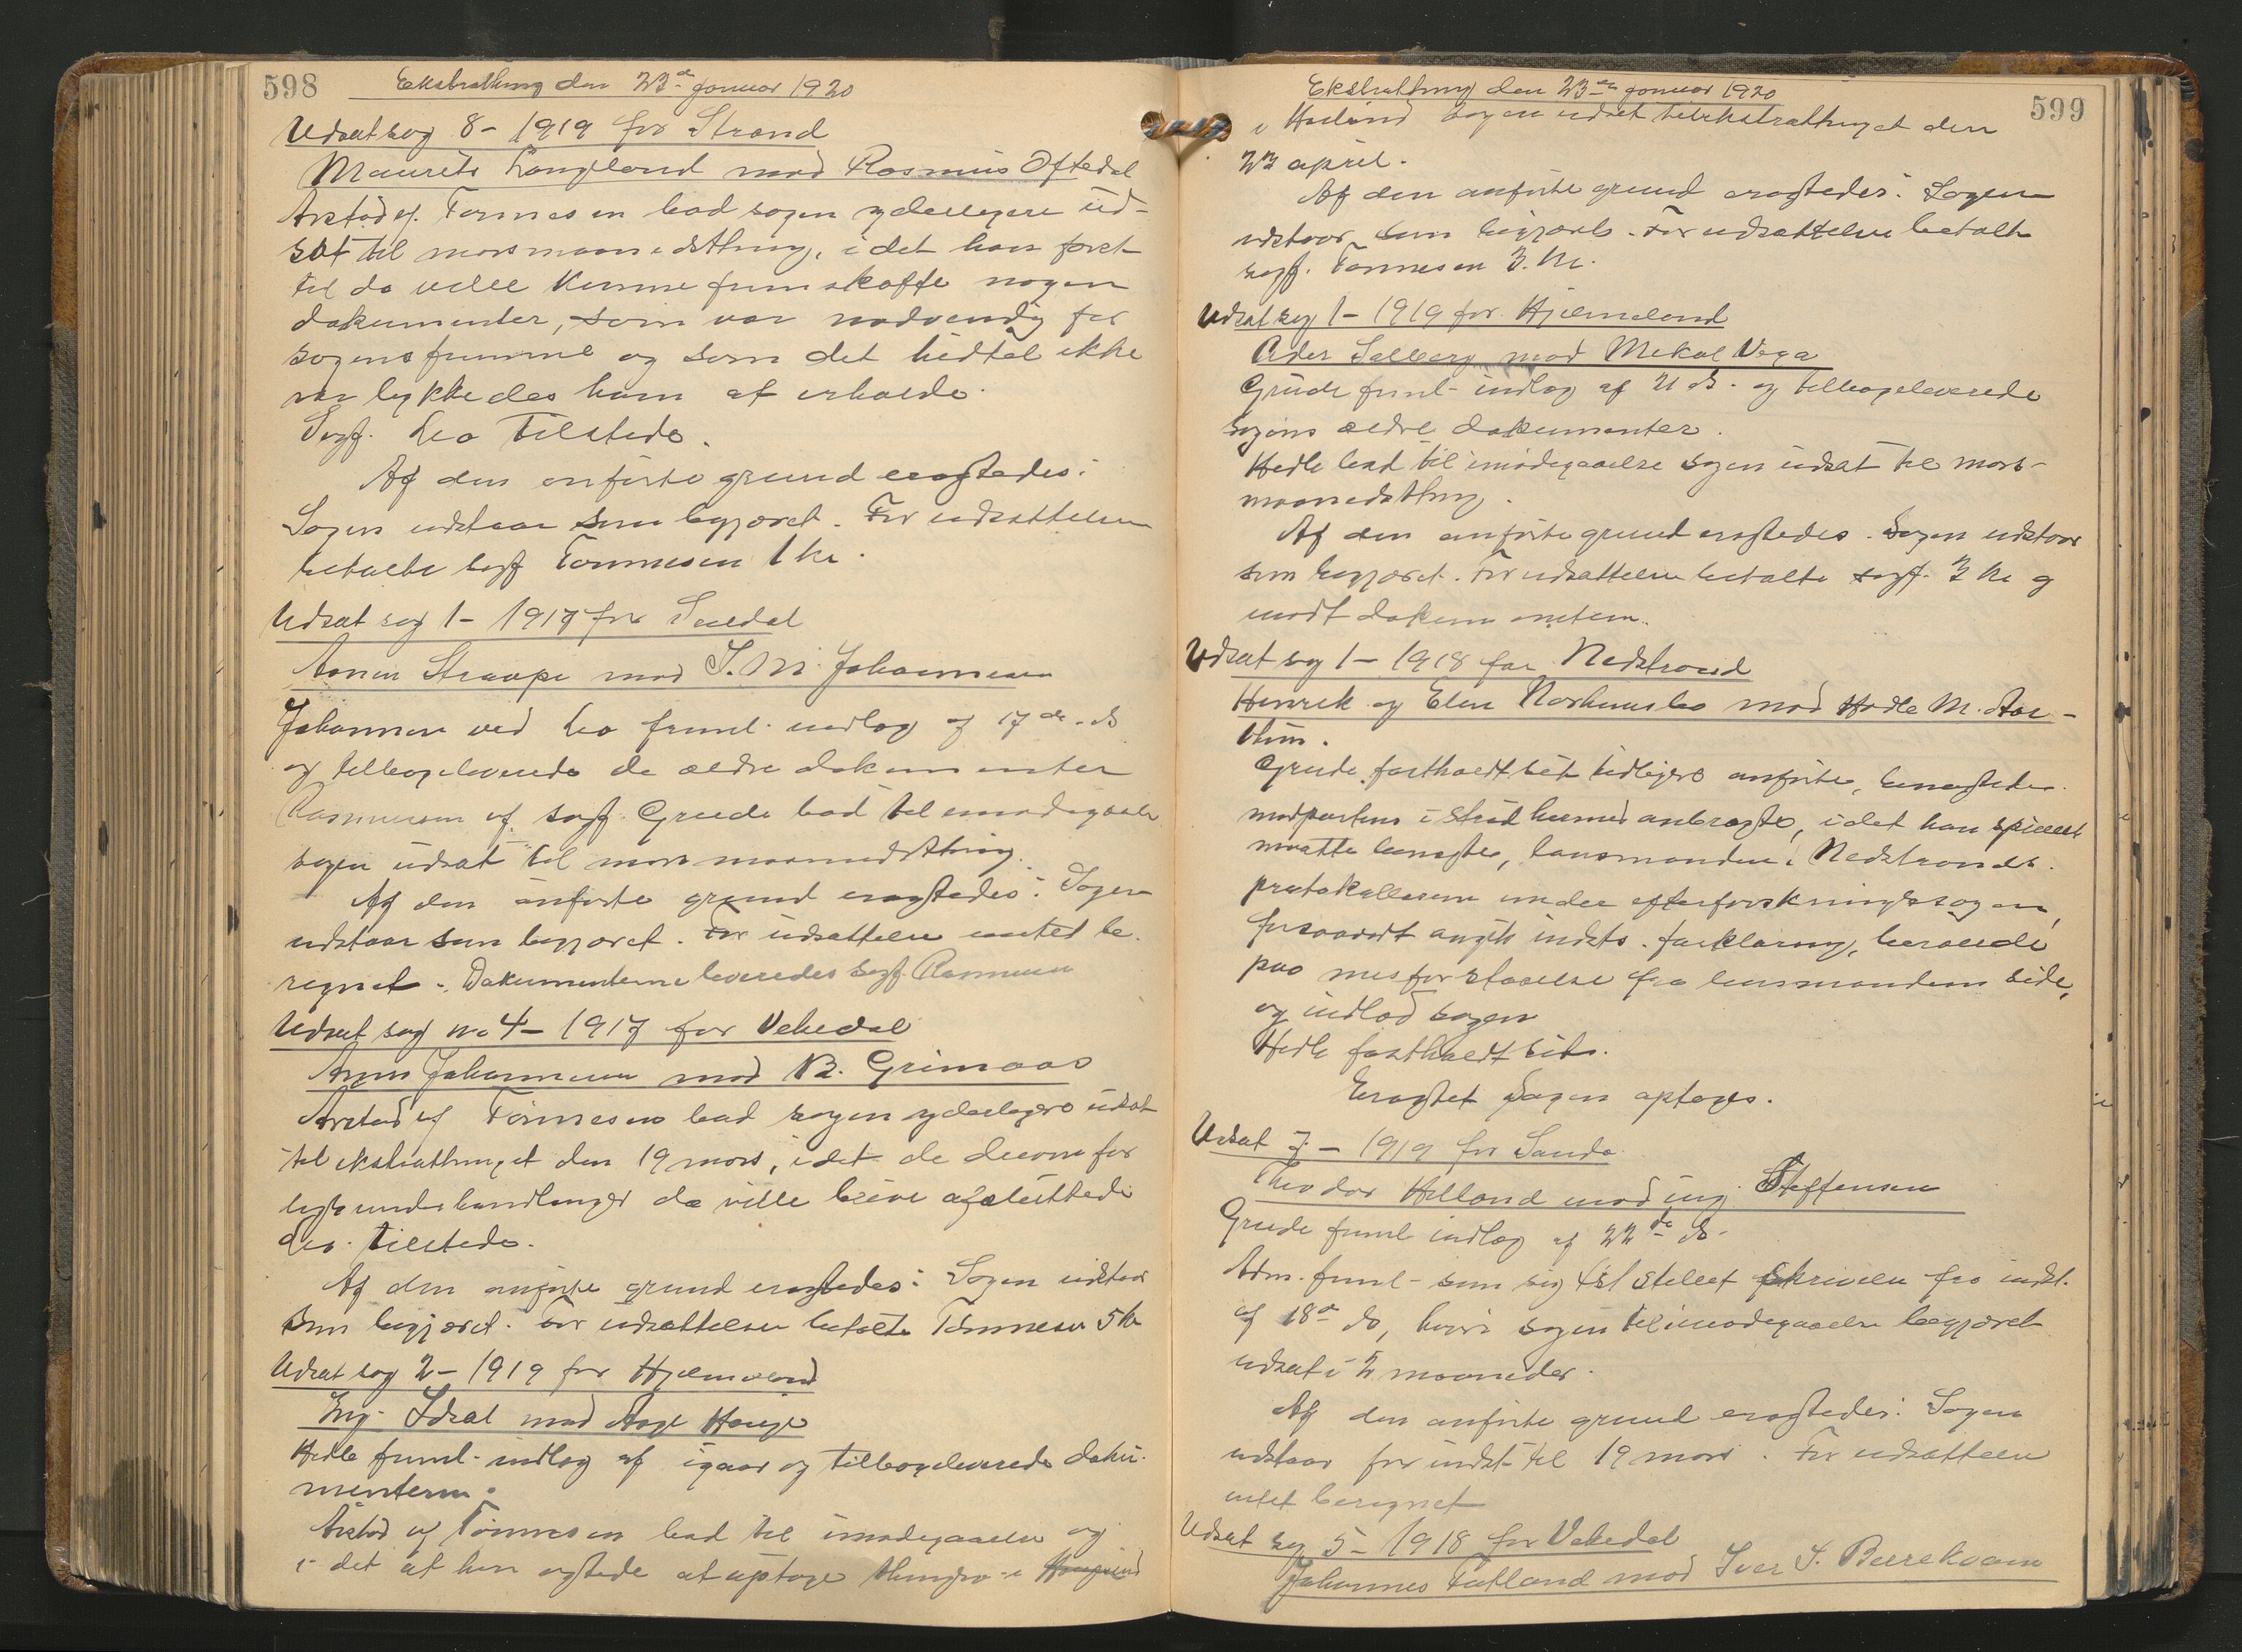 598
Ekstrathing den 23de januar 1920
Udsat sag 8 - 1919 for Strand
Maurits Langland mod Rasmus Oftedal
Arstad ef. Tønnesen bad sagen yderligere ud-
sat til marsmaanedsthing, idet han først
til da ville kunne fremskaffe nogen
dokumenter, som var nødvendig for
sagens fremme og som det hidtil ikke
var lykkedes ham at erholde.
Sagf. Lea tilstede.
Af den anførte grund eragtedes:
Sagen udstaar som begjæret. For udsættelsen
betalte sagf Tønnesen 1 kr.
Udsat sag 1 - 1917 for Suldal
mod J. M. Johannesen
Johannesen ved Lea freml. indlæg af 17de ds
og tilbageleverede de ældre dokumenter
Rasmussen ef. sagf. Grude bad til imødegaaelse
sagen udsat til mars maanedsthing.
Af den anførte grund eragtedes: Sagen
udstaar som begjæret. For udsættelse intet be-
regnet. Dokumenterne leveredes sagf. Rasmussen
Udsat sag no 4 - 1917 for Vikedal
Johannesen mod B. Grimaas
Arstad ef Tønnesen bad sagen yderligere udsat
til ekstrathinget den 19 mars, idet de
underhandlinger da ville blive afsluttede
Lea tilstede.
Af den anførte grund eragtedes: Sagen udstaar
som begjæret. For udsættelsen betalte Tønnesen 5 kr
Udsat sag 2 - 1919 for Hjelmeland
Ing. Idsal mod Aage Hauge
Hedle freml. indlæg af igaar og tilbageleverede doku-
menterne.
Arstad ef Tønnesen bad til imødegaaelse og
i det at han agtede at optage thingsv. i
Ekstrathing den 23de januar 1920
599
i sagen udsat til ekstrathinget den
23 april.
Af den anførte grund eragtedes: Sagen
udstaar som begjært. For udsættelsen betalte
sagf. Tønnesen 3. kr.
Udsat sag 1 - 1919 for Hjelmeland
Ader Salberg mod Mikal Vega
Grude freml. indlæg af 21 ds. og tilbageleverede
sagens ældre dokumenter.
Hedle bad til imødegaaelse sagen udsat til mars-
maanedsthing.
Af den anførte grund eragtedes. Sagen udstaar
som begjæret. For udsættelsen betalte sagf. 3 kr og
modt dokumenterne.
Udsat sag 1 - 1918 for Nedstrand
Henrik og Elen mod Hodle M. Aar-
thun.
Grude fastholdt sit tidligere anførte, benegtede
modpartens i strid hermed anbragte, idet han specielt
maatte benegte, lensmanden i Nedstrands
protokollasion under efterforskningssagen,
forsaavidt angik indsts. forklaring, beroende
paa misforstaaelse fra lensmandens side,
og indlod sagen
Hedle fastholdt sit.
Eragtet Sagen optages.
Udsat 7 - 1919 for Sauda
Theodor Helland mod ing. Steffensen
Grude freml indlæg af 22de ds.
Adm. freml. som sig tilstillet skrivelse fra indst.
af 18de ds, hvori sagen til imødegaaelse begjæret
udsat i 2 maaneder.
Af den anførte grund eragtedes: Sagen
udstaar for indst. til 19 mars. For udsættelsen
intet beregnet
Udsat sag 5 - 1918 for Vikedal
Johannes Fatland mod Iver I. Birrekvam